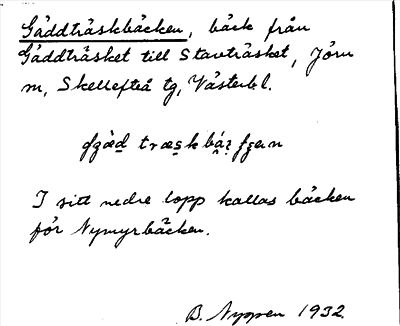 Gäddträskbäcken, bäck från
Gäddträsket till Stavträsket, Jörn
sn, Skellefteå tg, Västerb l.
I sitt nedre lopp kallas bäcken
för Nymyrbäcken.
1932